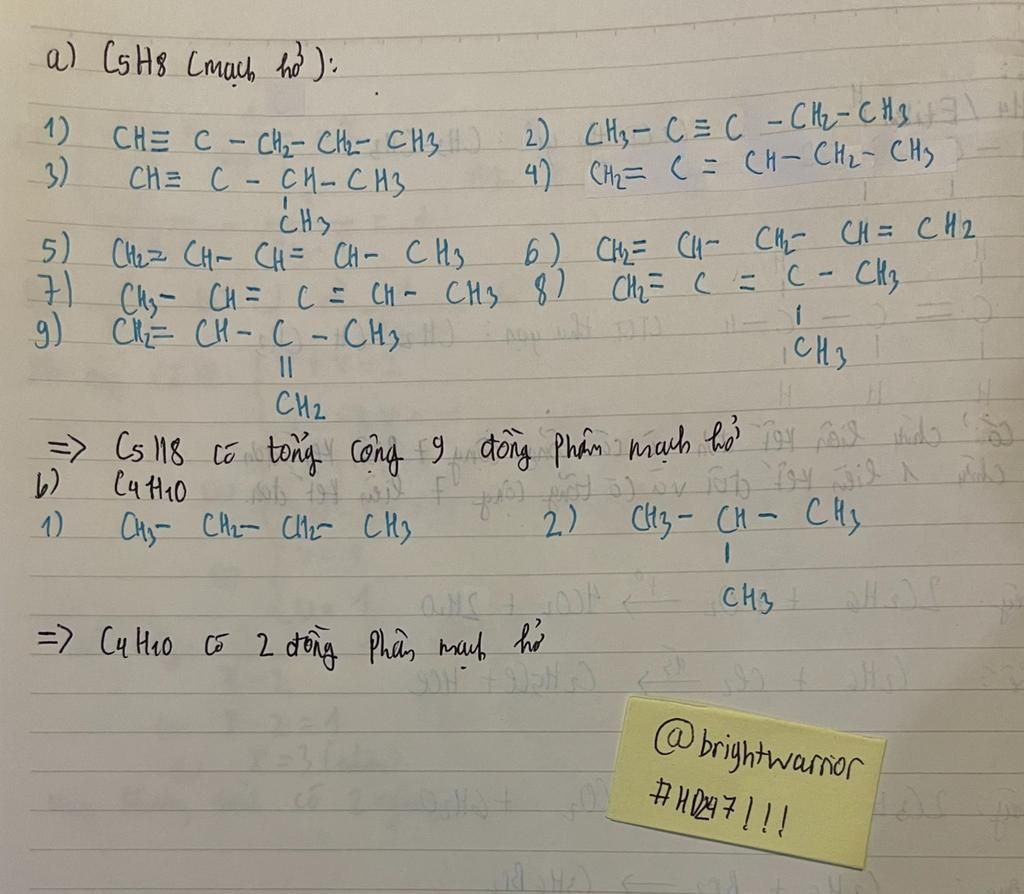 a) C5H8 (mạch hở):
1) CH≡ C - CH2- CH2- CH3 2) CH3- C ≡ C - CH2- CH3
3) CH≡ C - CH- CH3 4) CH2= C = CH- CH2- CH3
CH3
5) CH2= CH- CH= CH- CH3 6) CH2= CH- CH2- CH= CH2
7) CH3- CH= C = CH- CH3 8) CH2= C = C - CH3
CH3
9) CH2= CH- C - CH3
CH2
=> C5H8 có tổng cộng 9 đồng phân mạch hở
b) C4H10
1) CH3- CH2- CH2- CH3 2) CH3- CH- CH3
CH3
=> C4H10 có 2 đồng phân mạch hở
@brightwarrior
#HD247!!!